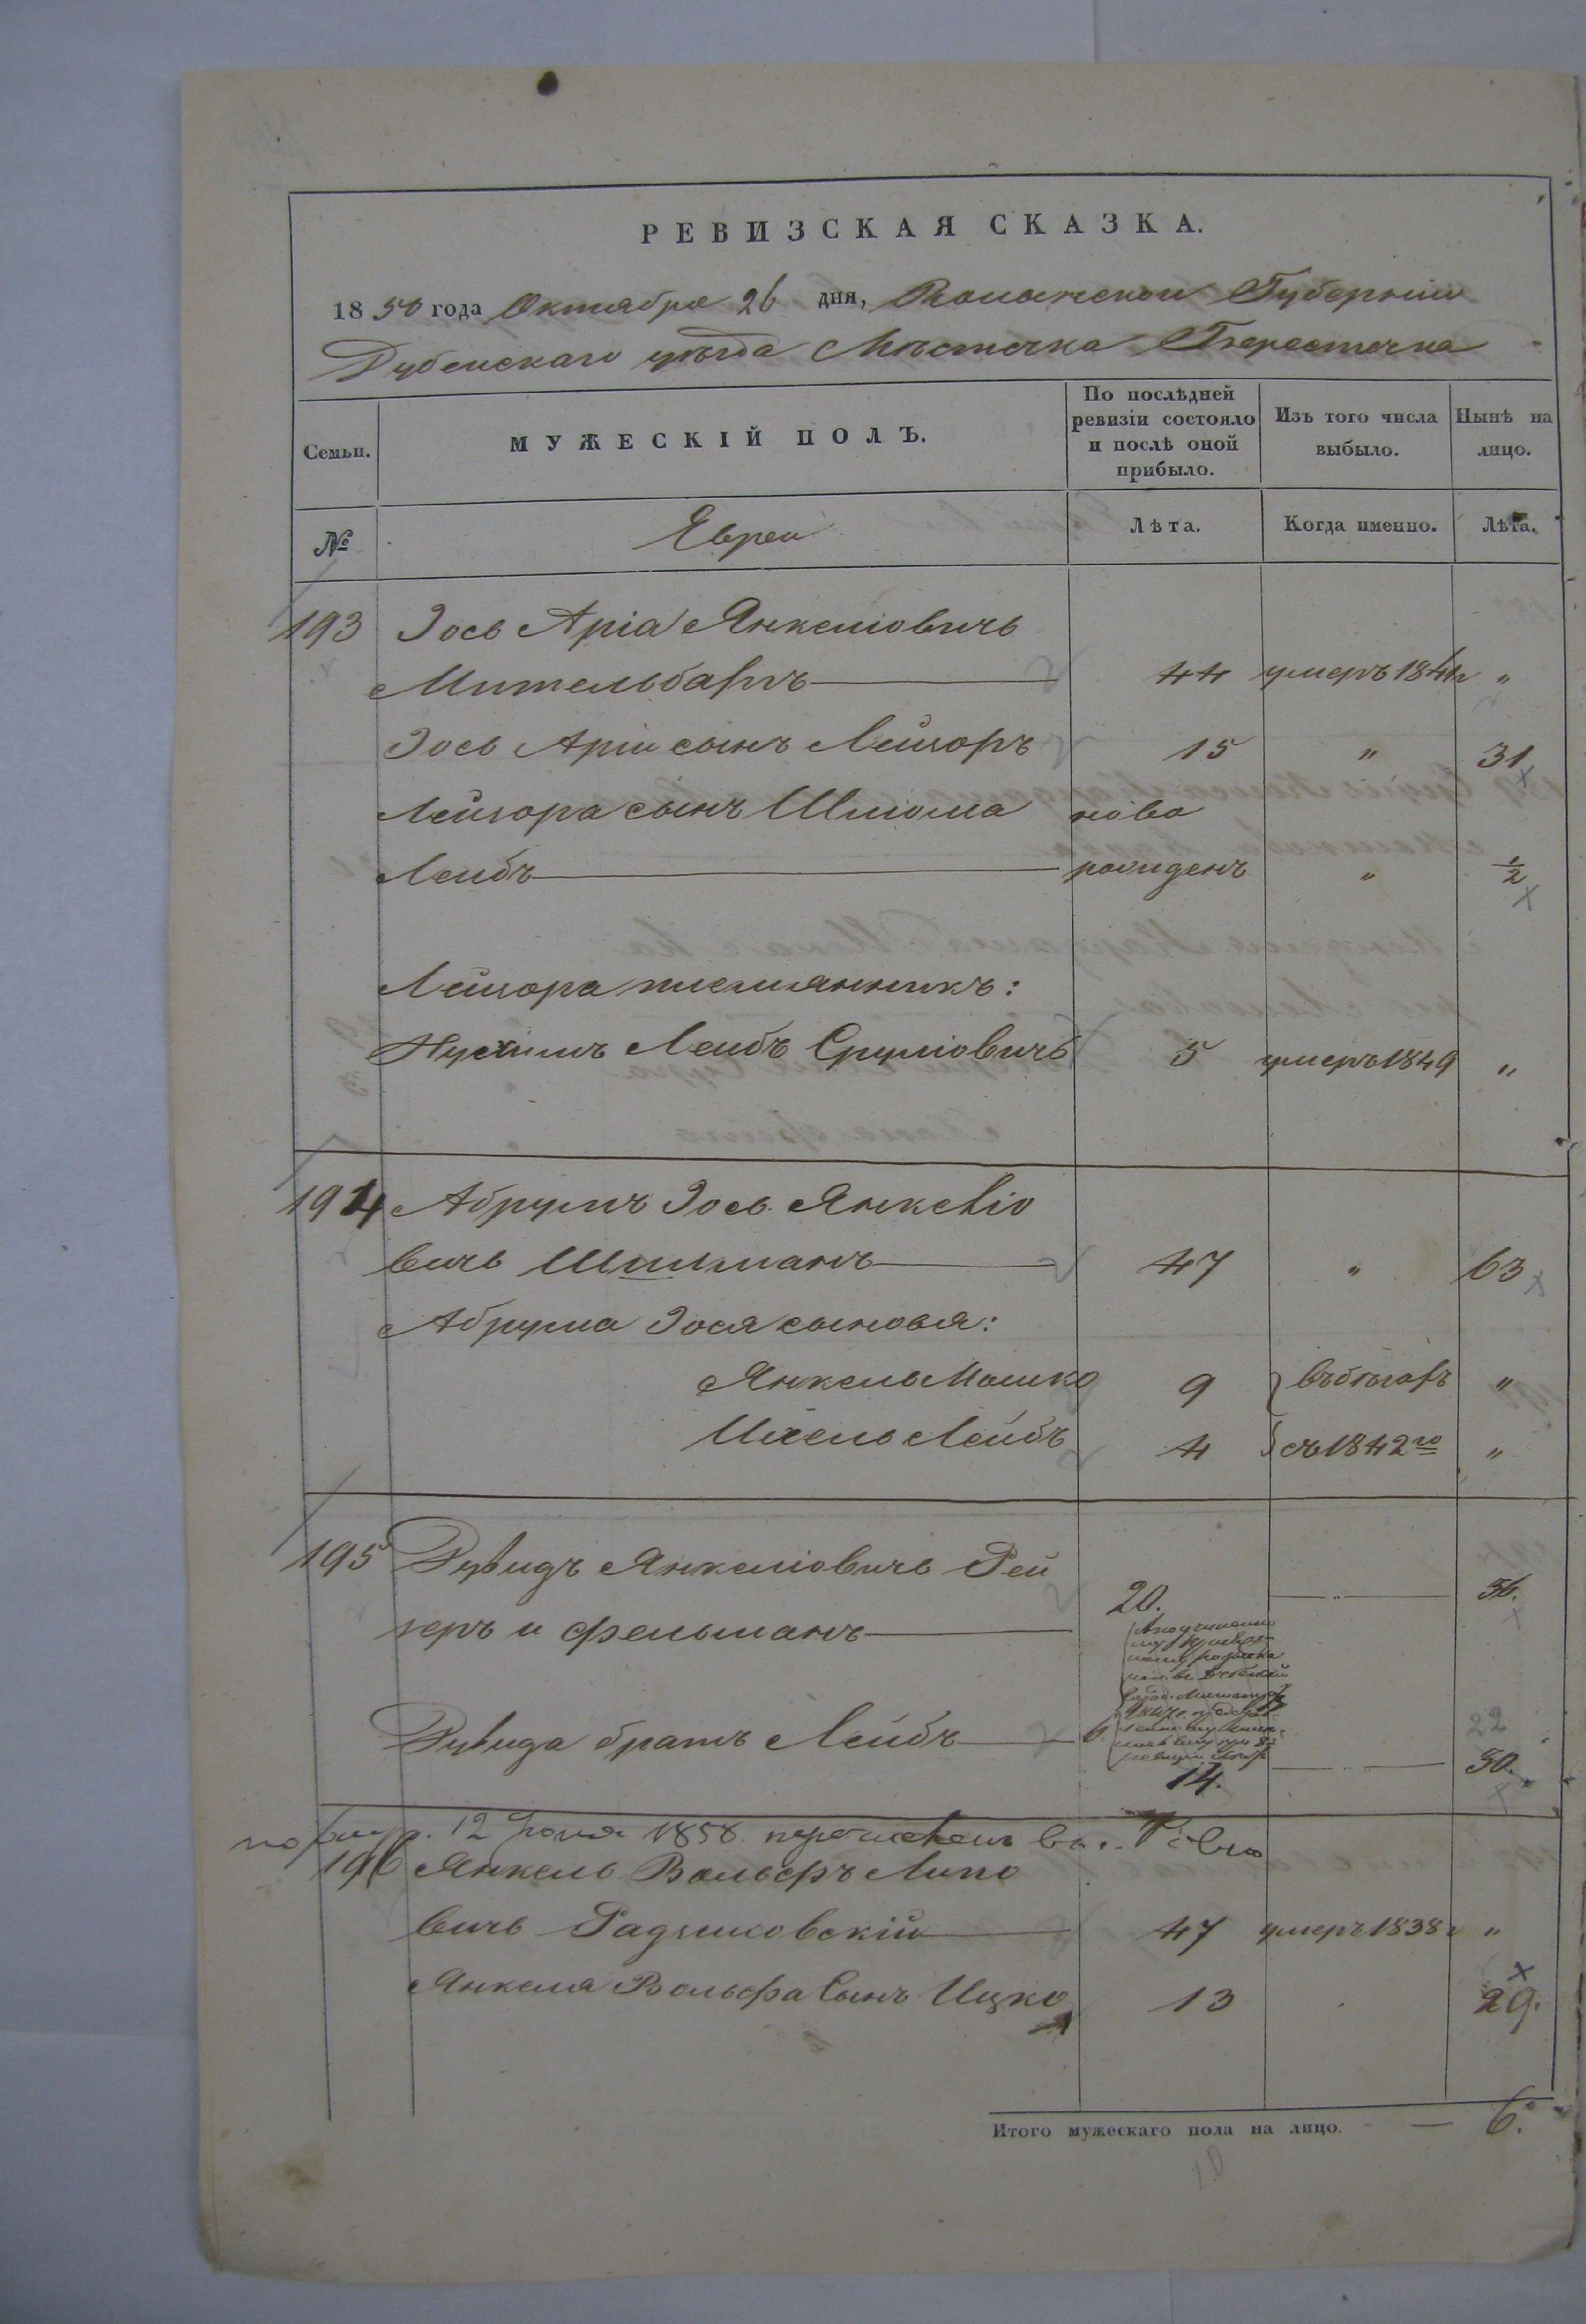 РЕВИЗСКАЯ СКАЗКА.
1850 года Октября 26 дня, Волынской Губернии
Дубенскаго уѣзда Мѣстечка Берестечка
Семьи. МУЖЕСКІЙ ПОЛЪ. По послѣдней ревизіи состояло и послѣ оной прибыло. Изъ того числа выбыло. Нынѣ на лицо.
№ Евреи Лѣта. Когда именно. Лѣта.
193 Іось Аріа Янкеліовичъ
Мительбартъ 44 умеръ 1841г "
Іось Аріи сынъ Лейзоръ 15 " 31
Лейзора сынъ Шліома ново
Лейбъ рожденъ " 1/2
Лейзора племянникъ:
Нухимъ Лейбъ Сруліовичъ 5 умеръ 1849 "
194 Абрумъ Іось Янкеліо
вичъ Шпильманъ 47 " 63
Абрума Іося сыновья:
Янкель Мошко 9 въ бѣгахъ "
Ихель Лейбъ 4 съ 1842го "
195 Дувидъ Янкеліовичъ Рей
геръ и Фельманъ 20. " 36.
22
Дувида братъ Лейбъ 14. 30.
12 1858. перечисленъ въ
196 Янкель Вольфъ Липо
вичъ Радзиховскій 47 умеръ 1838г "
Янкеля Вольфа Сынъ Ицко 13 29.
Итого мужескаго пола на лицо. — 6.